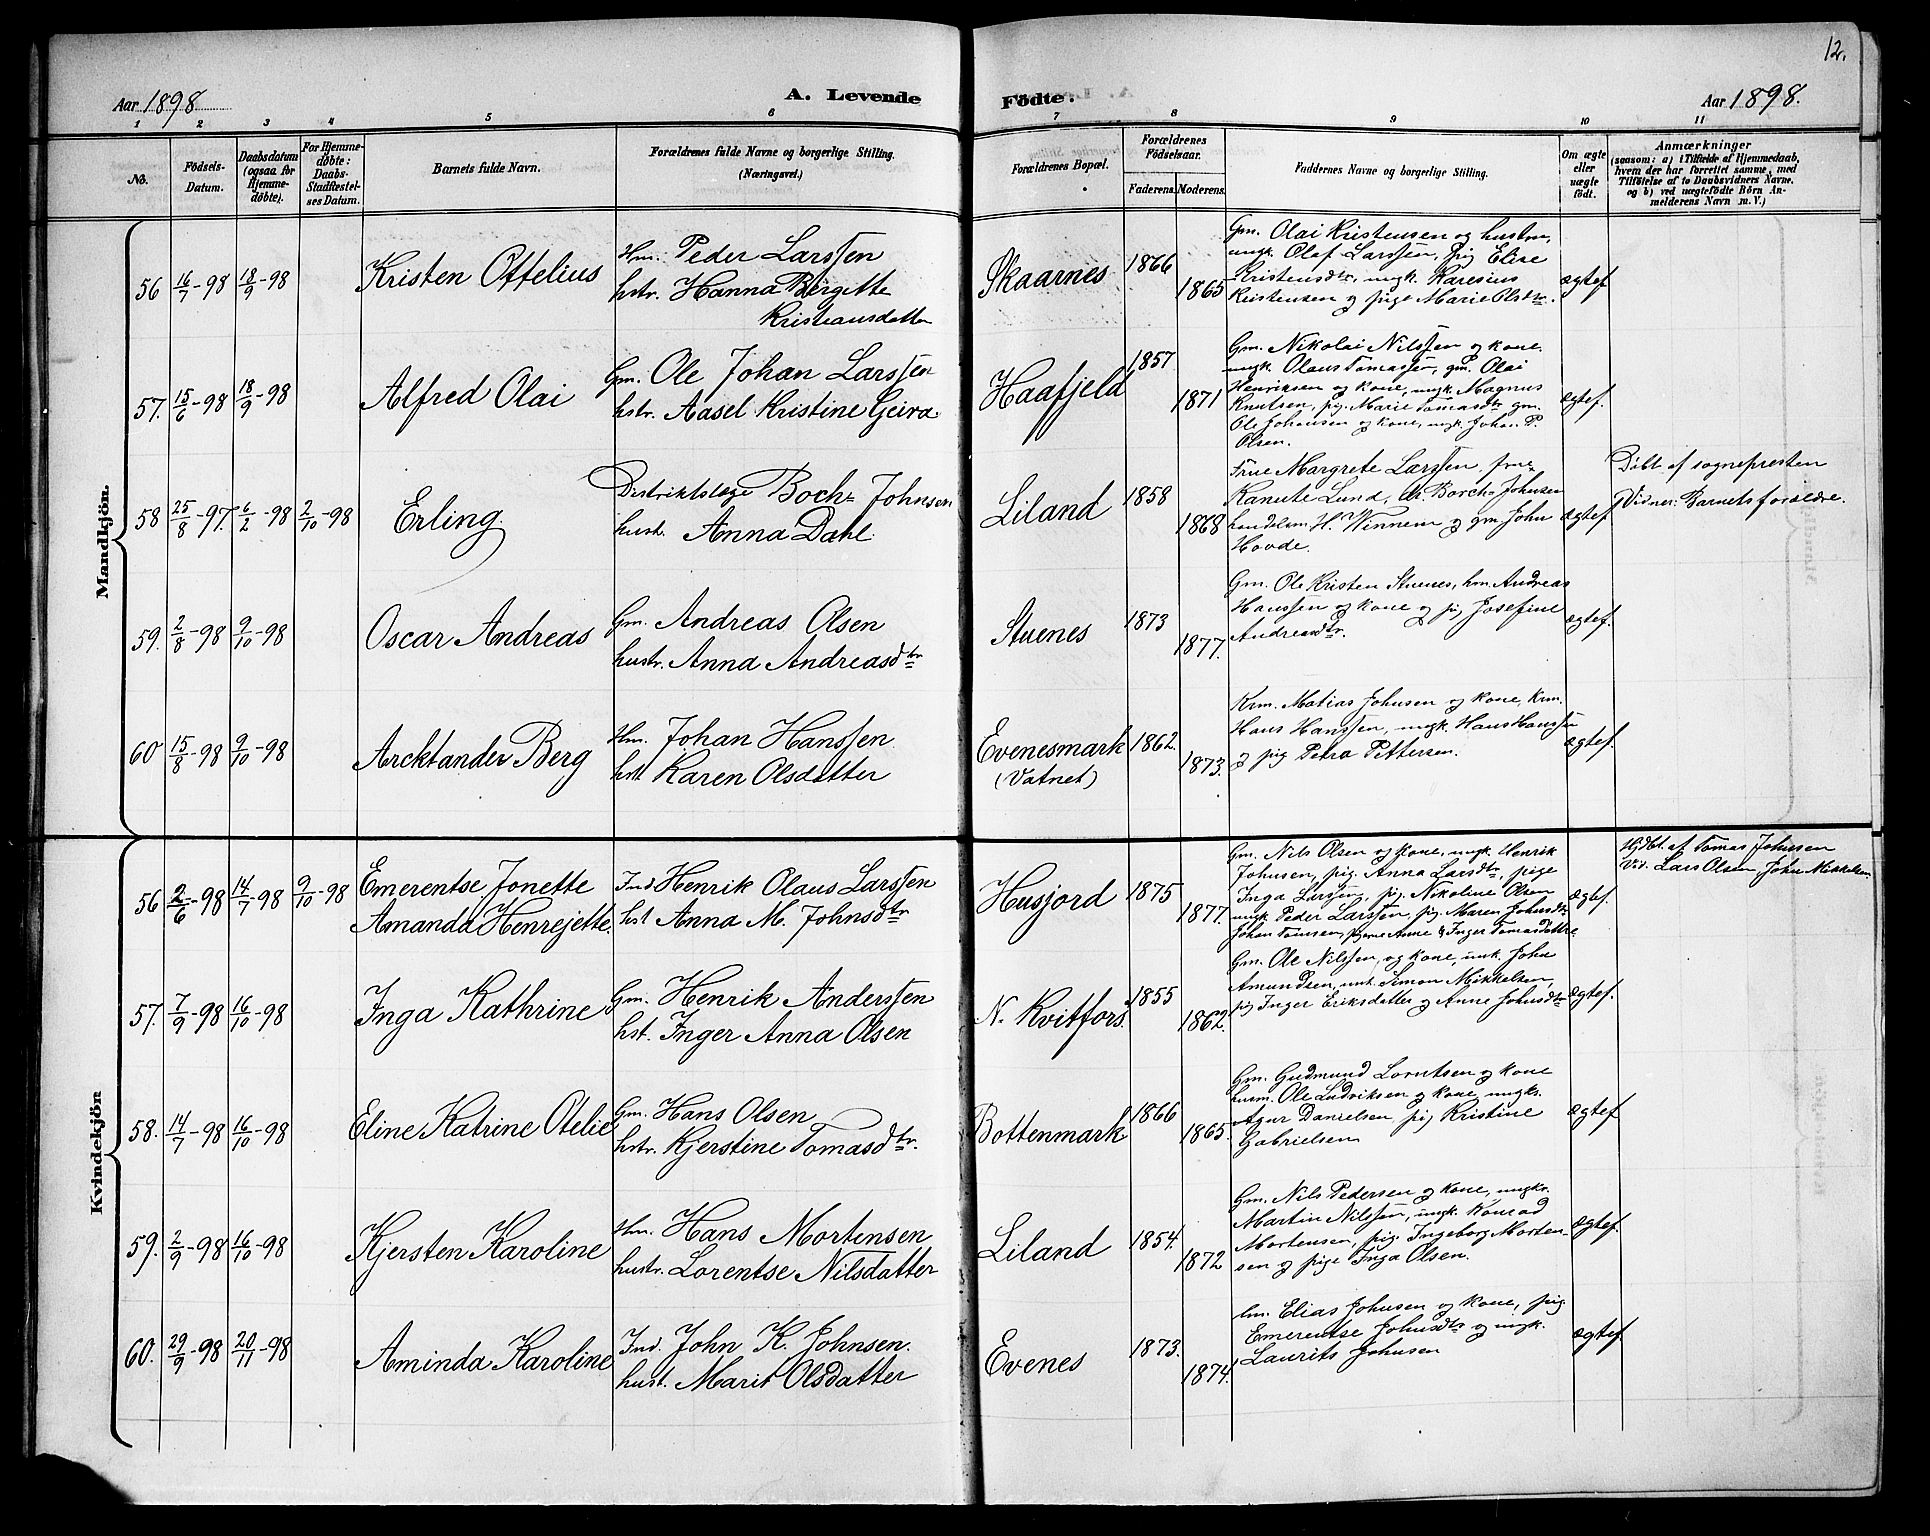 12.
Aar 1898
A. Levende
Födte.
Aar 1898.
1 2 3 4 5 6 7 8 9 10 11
No.
Födsels-Datum.
Daabsdatum (ogsaa for Hjemmedøbte).
For Hjemmedøbte: Daabs-Stadfæstelses Datum.
Barnets fulde Navn.
Forældrenes fulde Navne og borgerlige Stilling. (Næringsvei.)
Forældrenes Bopæl.
Forældrenes Födselsaar.
Faderens. Moderens.
Faddernes Navne og borgerlige Stilling.
Om ægte eller uægte födt.
Anmærkninger
(saasom: a) i Tilfælde af Hjemmedaab, hvem der har forrettet samme, med Tilföielse af to Daabsvidners Navne, og b) ved uægtefödte Börn Anmelderens Navn m. V.)
Mandkjön.
56 16/7-98 18/9-98
Kristen Ottelius
Hm. Peder Larssen
hstr. Hanna Bergitte
Kristiansdatter
Skaarnes
1866
1865
Gm. Olai Kristensen og hustru,
ungk. Olaf Larssen, pig Elise
Kristensdtr, ungk. Karesius
Kristensen og pige Marie Olsdtr.
ægtef
57. 15/6-98 18/9-98
Alfred Olai
Gm. Ole Johan Larssen
hstr. Aasel Kristine Geira
Haafjeld
1857
1871
Gm. Nikolai Nilssen og kone.
ungk. Olaus Tomassen, gm. Olai
Henriksen og kone, ungk. Magnus
Knutsen, pig. Marie Tomasdtr gm.
Ole Johansen og kone, ungk. Johan P.
Olsen.
ægtef.
58 25/8-97. 6/2-98 2/10-98
Erling.
Distriktslæge Boch- Johnsen
hust. Anna Dahl.
Liland
1858
1868
Frue Margrete Larssen, frue
Kanute Lund, dr. Borch-Johnsen
handelsm. H. Winnem og gm John
Hovde.
ægtef
Døbt af sognepresten
Vidner: Barnets forældre.
59. 2/8-98 9/10-98
Oscar Andreas
Gm. Andreas Olsen
hustr. Anna Andreasdtr
Stuenes
1873
1877.
Gm. Ole Kristen Stuenes, hm. Andreas
Hanssen og kone og pig Josefine
Andreasdtr.
ægtef.
60 15/8-98 9/10-98
Arcktander Berg
Hm. Johan Hanssen
hstr Karen Olsdatter
Evenesmark
(Vatnet)
1862.
1873.
Krm. Matias Johnsen og kone, Krm.
Hans Hanssen, ungk. Hans Hanssen
og pig Petra Pettersen.
ægtef.
Kvindekjön
56 2/6-98 14/7-98 9/10-98
Emerentse Jonette
Amanda Henrejette.
Ind Henrik Olaus Larssen
hst Anna M. Johnsdtr
Husjord
1875
1877.
Gm. Nils Olsen og kone, ungk. Henrik
Johnsen, pig. Anna Larsdtr, pige
Inga Larssen, pig. Nikoline Olsen
ungk. Peder Larssen, pig. Maren Johnsdtr
Johan Tomsen, pigerne Anne & Inger Tomasdattre
ægtef.
Hjdbt. af Tomas Johnsen
Vid. Lars Olsen, John Mikkelsen
57. 7/9-98 16/10-98
Inga Kathrine
Gm. Henrik Anderssen
hst. Inger Anna Olsen
N. Kvitfors.
1855
1862.
Gm. Ole Nilssen, og kone, unk. John
Amundsen, unk. Simon Mikkelsen,
pig Inger Eriksdatter og Anne Johnsdtr
ægtef.
58. 14/7-98 16/10-98
Eline Katrine Otelie
Gm. Hans Olsen
hstr. Kjerstine Tomasdtr.
Bottenmark
1866
1865.
Gm. Gudmund Lorntsen og kone
husm. Ole Ludviksen og kone, ungk.
Agur Danielsen, pig Kristine
Gabrielsen
ægtef
59. 2/9-98 16/10-98
Kjersten Karoline
Hm. Hans Mortensen
hustr. Lorentse Nilsdatter
Liland
1854.
1872
Gm. Nils Pedersen og kone, ungk.
Martin Nilssen, ungk. Konrad
Mortensen, pig. Ingeborg Morten-
sen og pige Inga Olsen.
ægtef.
60. 29/9-98 20/11-98
Aminda Karoline
Ind. John K. Johnsen.
hust. Marit Olsdatter
Evenes
1873.
1874.
Elias Johnsen og kone, pig.
Emerentse Johnsdtr og ungk.
Laurits Johnsen
ægtef